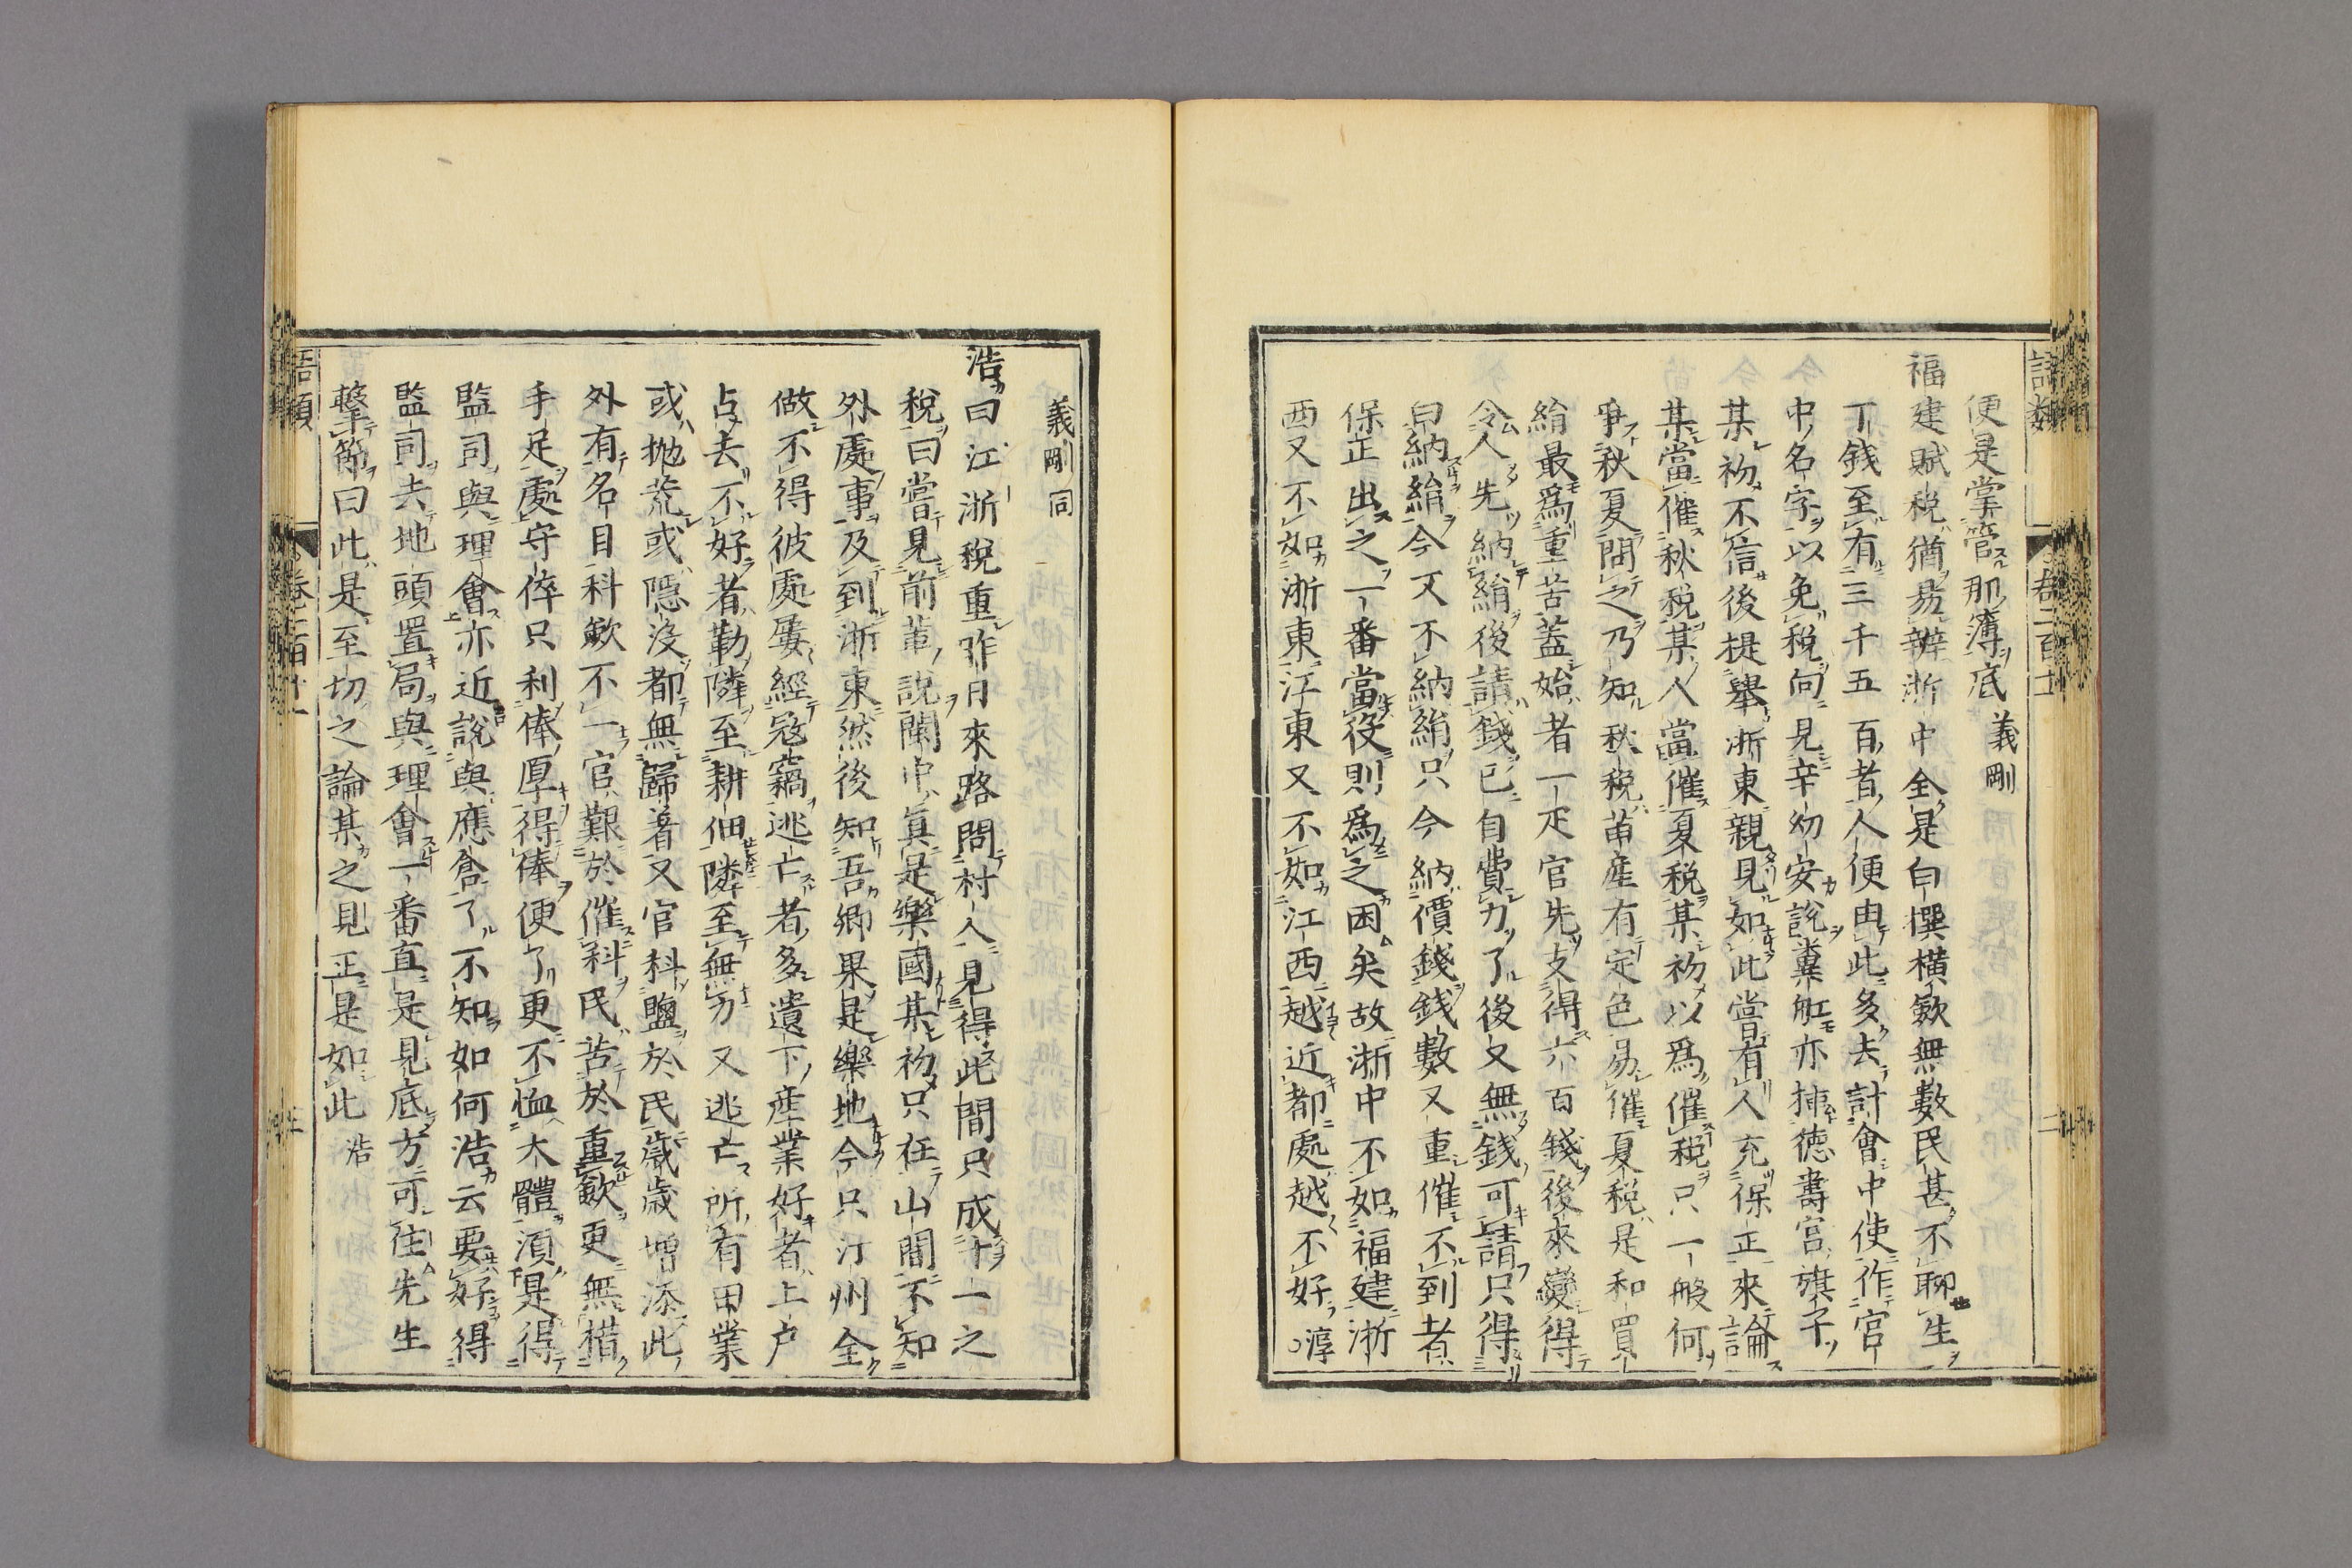 便是掌管那簿底義剛
福建賦稅猶易辨浙中全是白撰橫斂無數民甚不聊生
丁錢至有三千五百者人便由此多去計會中使作宮
中名字以免稅向見辛幼安說糞船亦插德壽宮旗子
某初不信後提舉浙東親見如此嘗有人充保正來論
某當催秋稅某人當催夏稅某初以爲催稅只一般何
爭秋夏問之乃知秋稅苗產有定色易催夏稅是和買
絹最爲重苦蓋始者一疋官先支得六百錢後來變得
令人先納絹後請錢已自費力了後又無錢可請只得
白納絹今又不納絹只今納價錢錢數又重催不到者
保正出之一番當役則爲之困矣故浙中不如福建浙
西又不如浙東江東又不如江西越近都處越不好淳○
義剛同
浩曰江浙稅重昨日來路問村人見得此間只成十一之
稅曰嘗見前輩說閩中眞是樂國某初只在山間不知
外處事及到浙東然後知吾鄉果是樂地今只汀州全
做不得彼處屢經寇竊逃亡者多遺下產業好者上戶
占去不好者勒隣至耕佃隣至無力又逃亡所有田業
或抛荒或隱沒都無歸著又官科鹽於民歲歲增添此
外有名目科斂不一官艱於催科民苦於重斂更無措
手足處守倅只利俸厚得俸便了更不恤大體須是得
監司與理會亦近說與應倉了不知如何浩云要好得
監司去地頭置局與理會一番直是見底方可住先生
擊節曰此是至切之論某之見正是如此浩
語類
卷一百十一